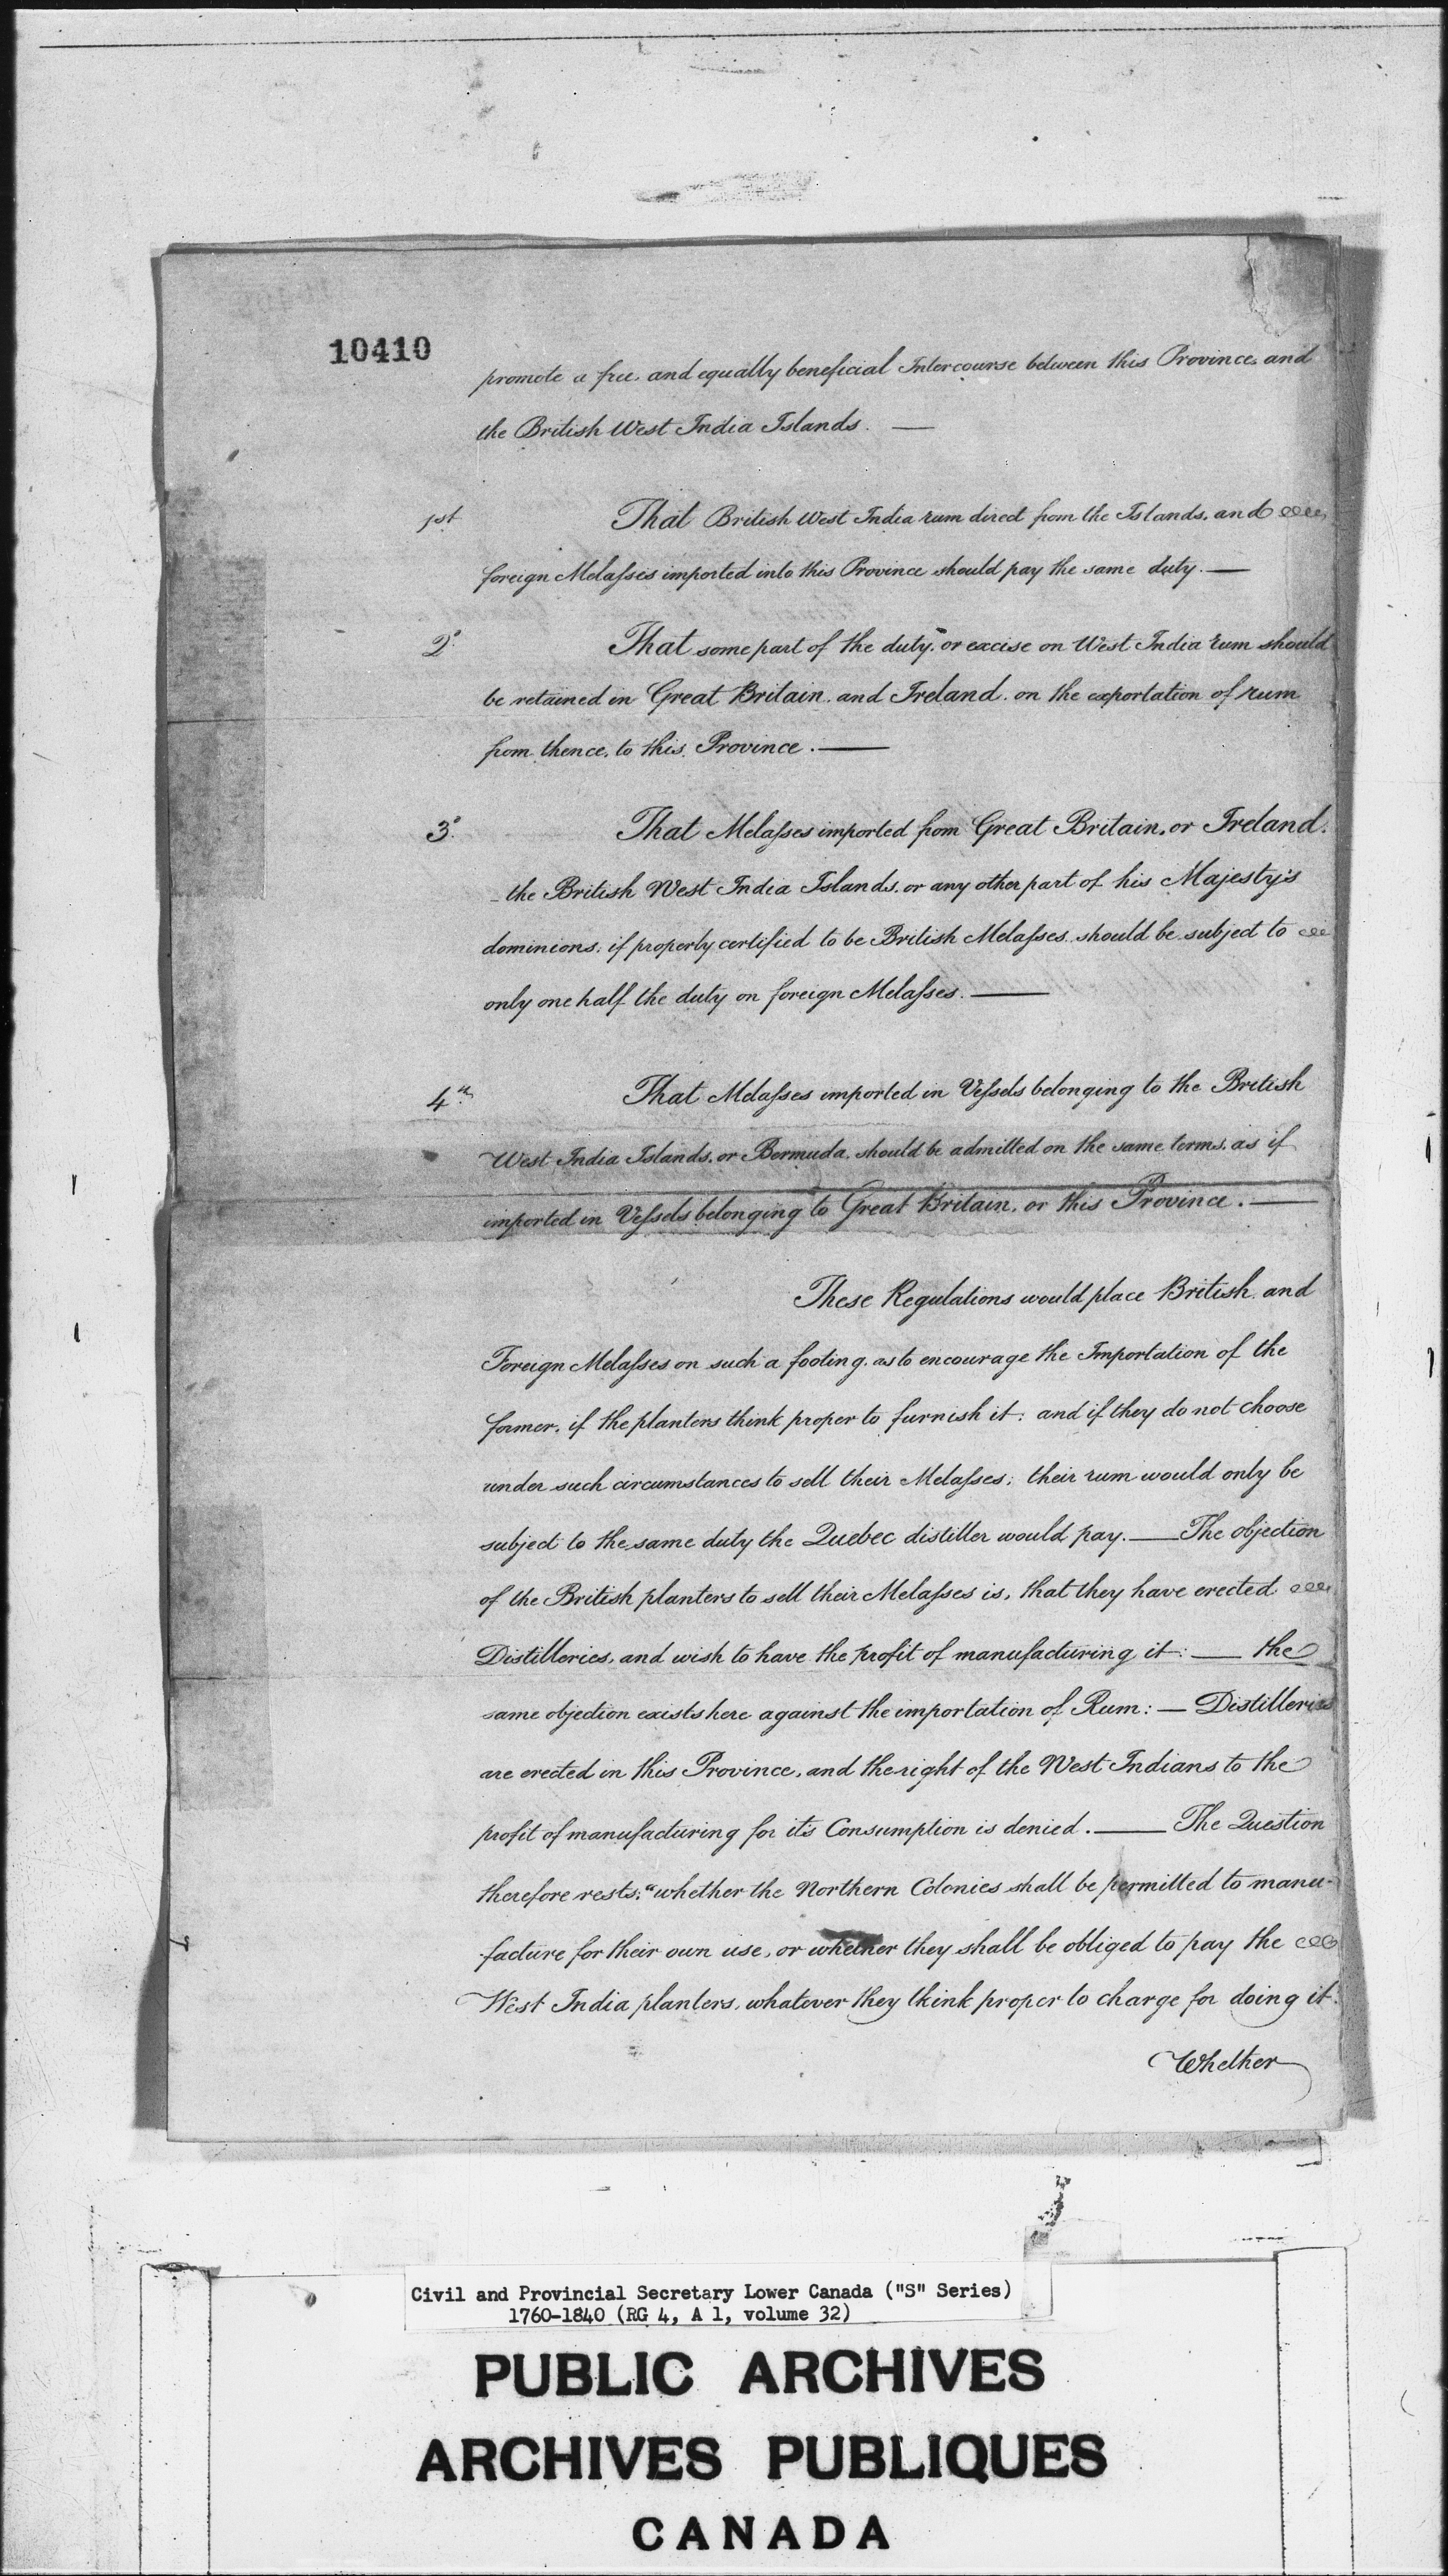 10410
promote a free, and equally beneficial Intercourse between this Province, and
the British West India Islands. —
1st That British West India rum direct from the Islands, and
foreign Melaſses imported into this Province should pay the same duty. —
2d. That some part of the duty, or excise on West India rum should
be retained in Great Britain, and Ireland, on the exportation of rum
from thence, to this Province. —
3d. That Melaſses imported from Great Britain, or Ireland,
the British West India Islands, or any other part of his Majesty's
dominions, if properly certified to be British Melaſses, should be subject to
only one half the duty on foreign Melaſses. —
4th. That Melaſses imported in Veſsels belonging to the British
West India Islands, or Bermuda, should be admitted on the same terms, as if
imported in Veſsels belonging to Great Britain, or this Province. —
These Regulations would place British, and
Foreign Melaſses on such a footing, as to encourage the Importation of the
former, if the planters think proper to furnish it; and if they do not choose
under such circumstances to sell their Melaſses; their rum would only be
subject to the same duty the Quebec distiller would pay. — The objection
of the British planters to sell their Melaſses is, that they have erected
Distilleries, and wish to have the profit of manufacturing it: — the
same objection exists here against the importation of Rum: — Distilleries
are erected in this Province, and the right of the West Indians to the
profit of manufacturing for it's Consumption is denied. — The Question
therefore rests, "whether the Northern Colonies shall be permitted to manu-
facture for their own use, or whether they shall be obliged to pay the
West India planters, whatever they think proper to charge for doing it.
Whether
Civil and Provincial Secretary Lower Canada ("S" Series)
1760-1840 (RG 4, A 1, volume 32)
PUBLIC ARCHIVES
ARCHIVES PUBLIQUES
CANADA